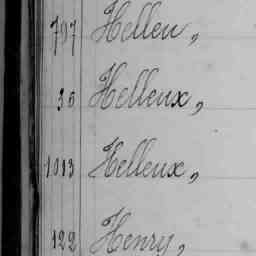 797 Helleu,
36 Helleux,
1013 Helleux,
122 Henry,